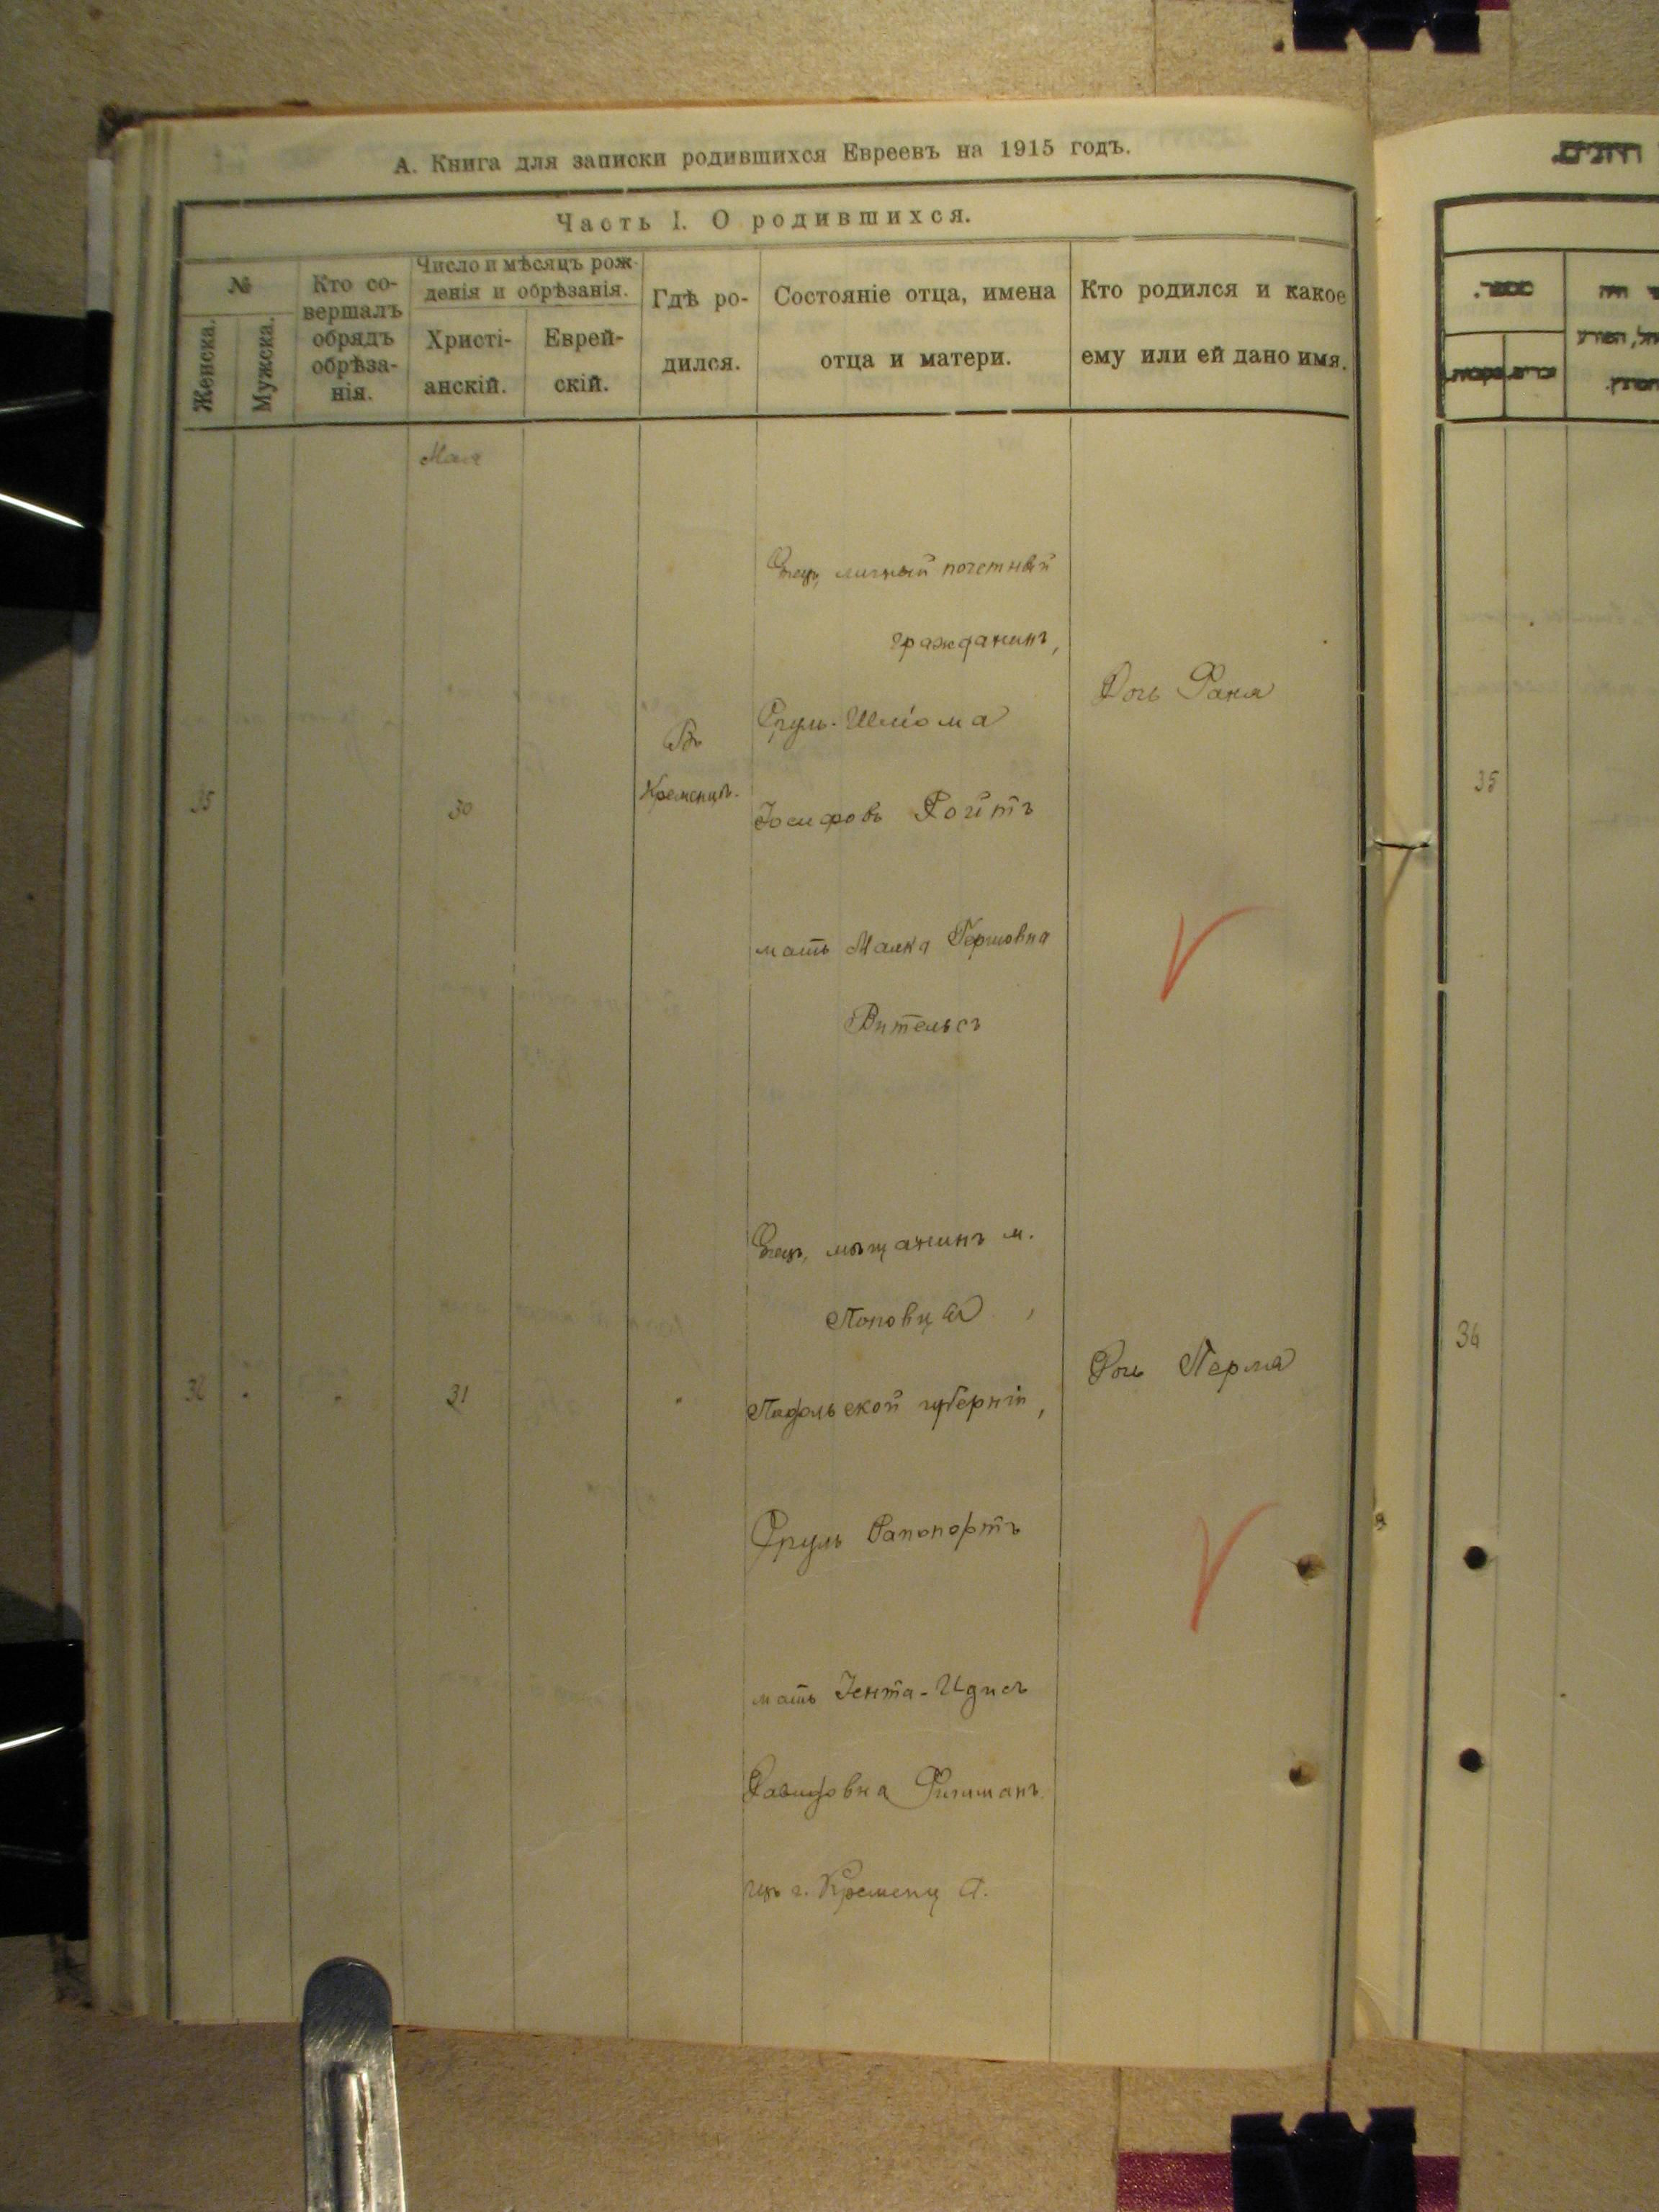 А. Книга для записки родившихся Евреевъ на 1915 годъ.
Часть I. О родившихся.
№
Женска.
Мужска.
Кто со-
вершалъ
обрядъ
обрѣза-
нія.
Число и мѣсяцъ рож-
денія и обрѣзанія.
Христі-
анскій.
Еврей-
скій.
Гдѣ ро-
дился.
Состояніе отца, имена
отца и матери.
Кто родился и какое
ему или ей дано имя.
Мая
35
30
Въ
Кременцѣ.
Отецъ, личный почетный
гражданинъ,
Сруль-Шліома
Іосифовъ Ройтъ
мать Малка Гершовна
Вительсъ
Дочь Раня
35
31
Отецъ, мѣщанинъ м.
Поповца,
Подольской губерніи,
Сруль Рапопортъ
мать Іента-Идисъ
Давидовна
изъ г. Кременца.
Дочь Перля
36